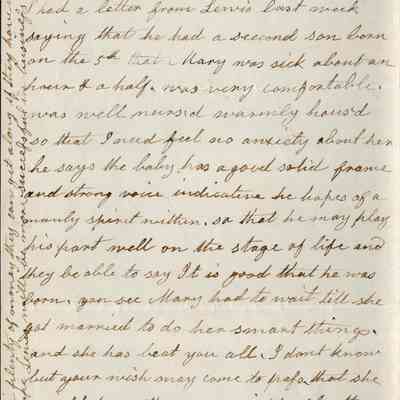 I had a letter from Lewis last week
saying that he had a second son born
on the 5th that Mary was sick about an
hour & a half. was very comfortable.
was well nursed warmly hous'd
so that I need feel no anxiety about her
he says the baby has a good solid frame
and strong voice indicative he hopes of a
manly spirit within. so that he may play
his part well on the stage of life and
they be able to say It is good that he was
born. you see Mary had to wait till she
got married to do her smart things.
and she has beat you all. I dont know
but your wish may come to pass that she
plenty of money they can get along if they have
Lewis will be more successful in business